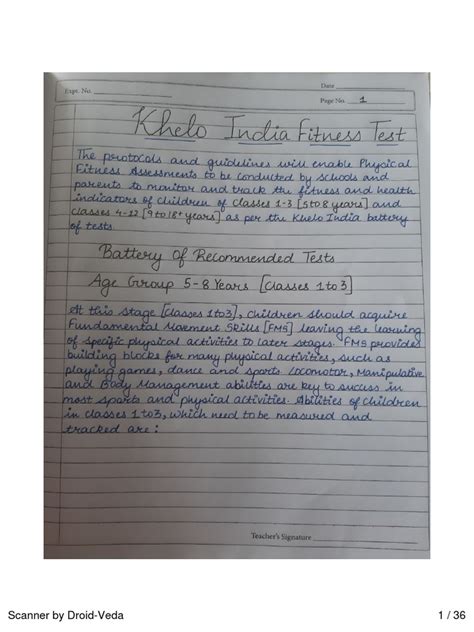 Expt. No.
Date
Page No. 1
Khelo India Fitness Test
The protocols and guidelines will enable Physical
Fitness Assessments to be conducted by schools and
parents to monitor and track the fitness and health
indicators of children of classes 1-3 [5 to 8 years] and
classes 4-12 [9 to 18+ years] as per the Khelo India battery
of tests.
Battery Of Recommended Tests
Age Group 5-8 Years [Classes 1 to 3]
At this stage [Classes 1 to 3], children should acquire
Fundamental Movement Skills [FMS] leaving the learning
of specific physical activities to later stages. FMS provides
building blocks for many physical activities, such as
playing games, dance and sports. Locomotor, Manipulative
and Body Management abilities are key to success in
most sports and physical activities. Abilities of Children
in classes 1 to 3, which need to be measured and
tracked are:
Teacher's Signature
Scanner by Droid-Veda
1 / 36